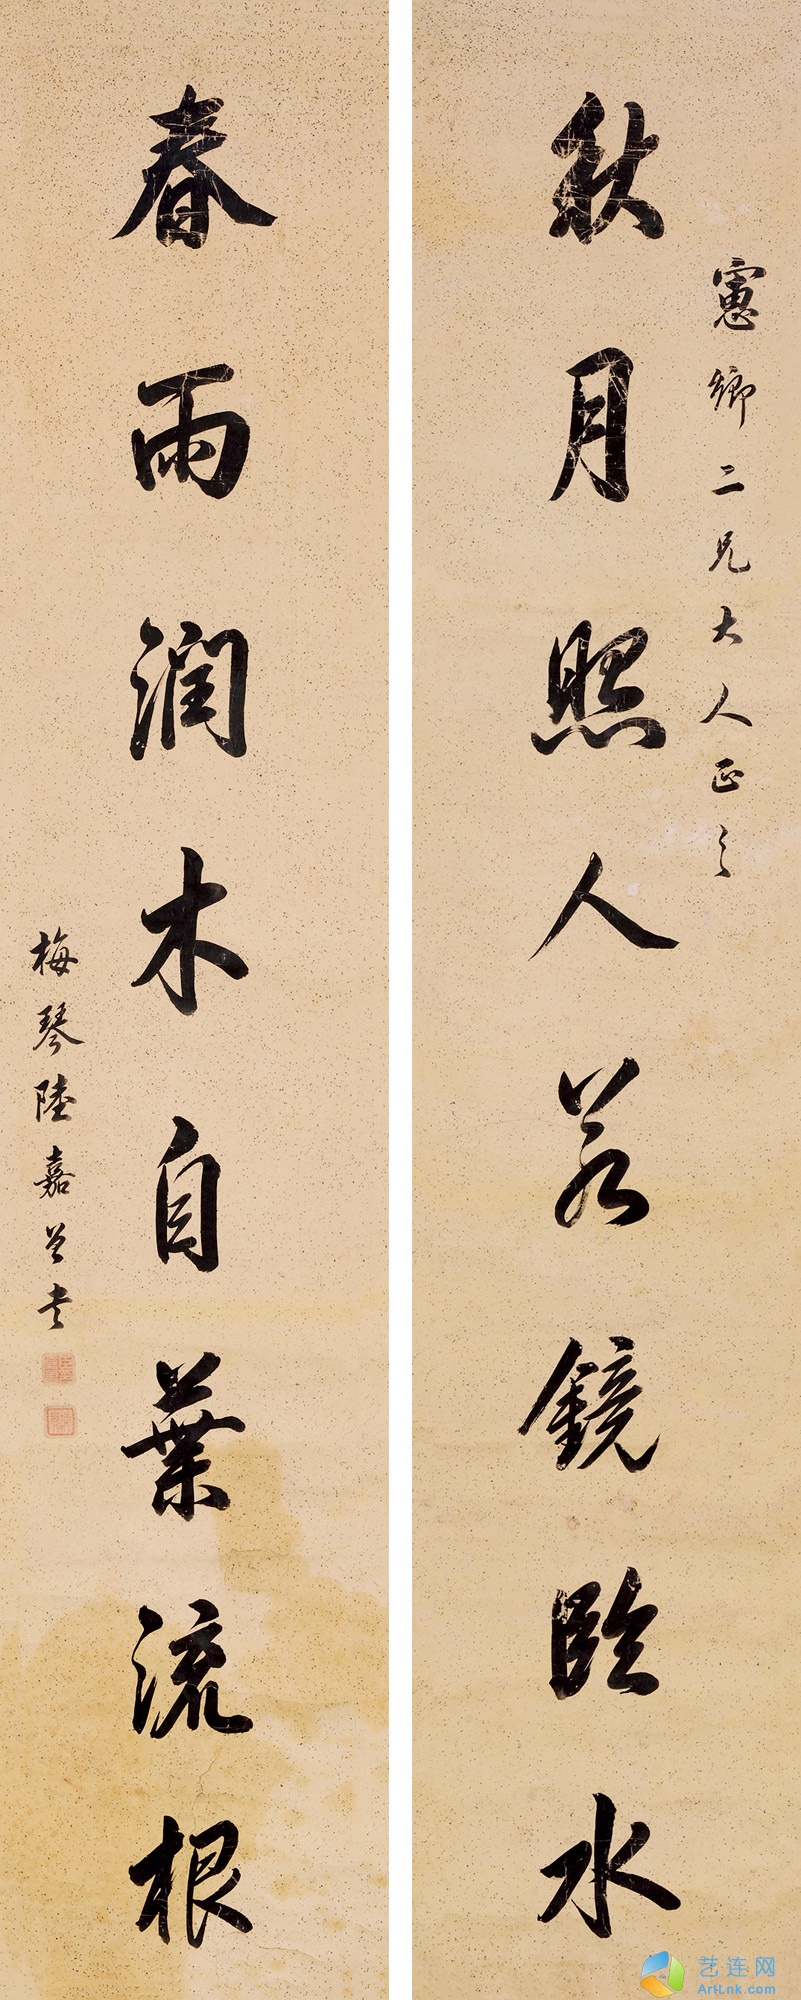 憲卿二兄大人正之
秋月照人若鏡臨水
春雨潤木自葉流根
梅琴陸嘉
艺连网
ArtLnk.com